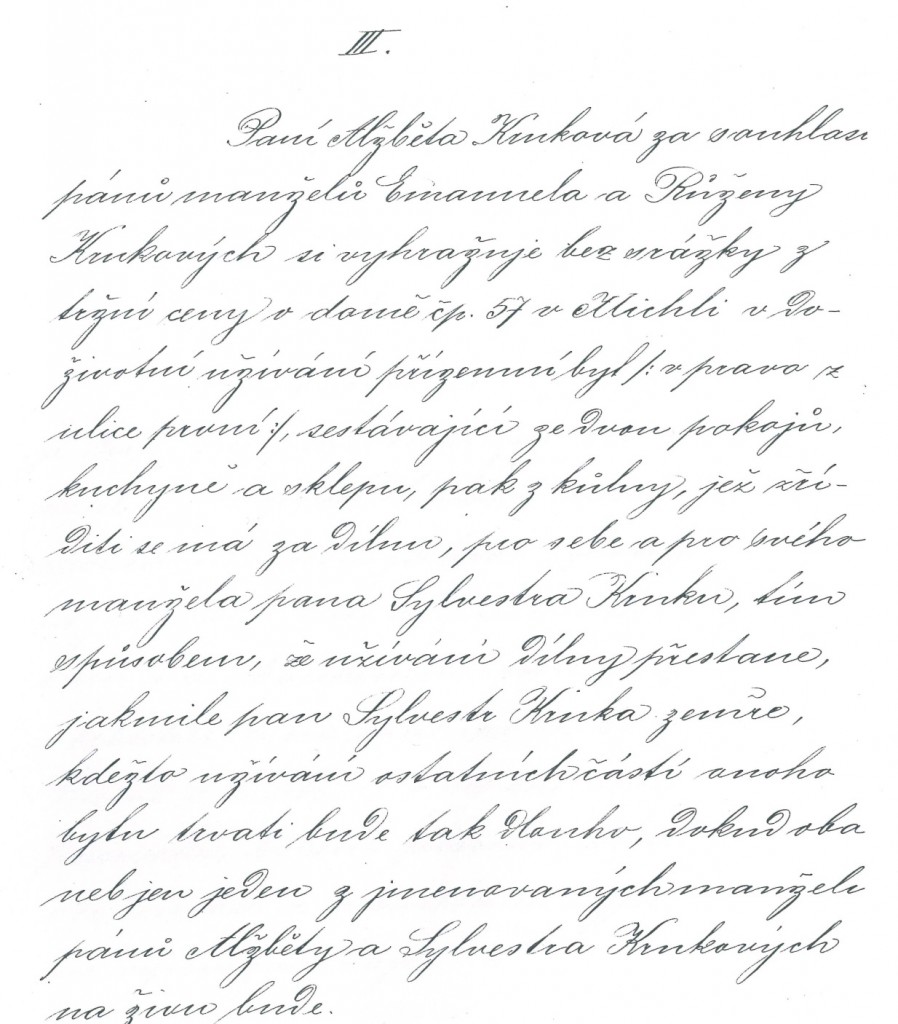 III.
Paní Alžběta Krnková za souhlasu
pánů manželů Emanuela a Růženy
Krnkových si vyhražuje bez srážky z
tržní ceny v domě čp. 57 v Michli v do-
životní užívání přízemní byt /: v pravo z
ulice první :/, sestávající ze dvou pokojů,
kuchyně a sklepu, pak z kůlny, jež zří-
diti se má za dílnu, pro sebe a pro svého
manžela pana Sylvestra Krnku, tím
spůsobem, že užívání dílny přestane,
jakmile pan Sylvestr Krnka zemře,
kdežto užívání ostatních částí onoho
bytu trvati bude tak dlouho, dokud oba
neb jen jeden z jmenovaných manželů
pánů Alžběty a Sylvestra Krnkových
na živu bude.